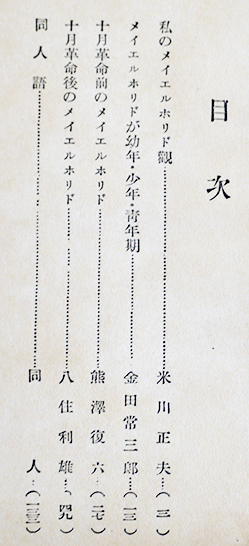 目次
私のメイエルホリド觀……米川正夫…(三)
メイエルホリドが幼年・少年・靑年期……金田常三郎…(一三)
十月革命前のメイエルホリド……熊澤復六…(二七)
十月革命後のメイエルホリド……八住利雄…(四九)
同人語……同人…(一三一)